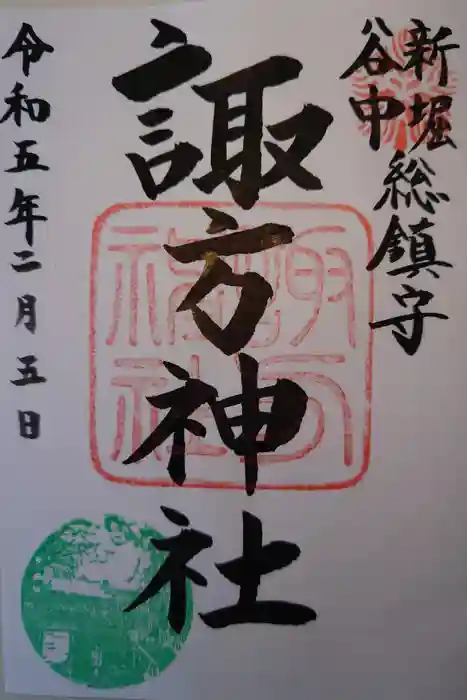 新堀
谷中
総鎮守
諏方神社
令和五年二月五日
諏方
神社